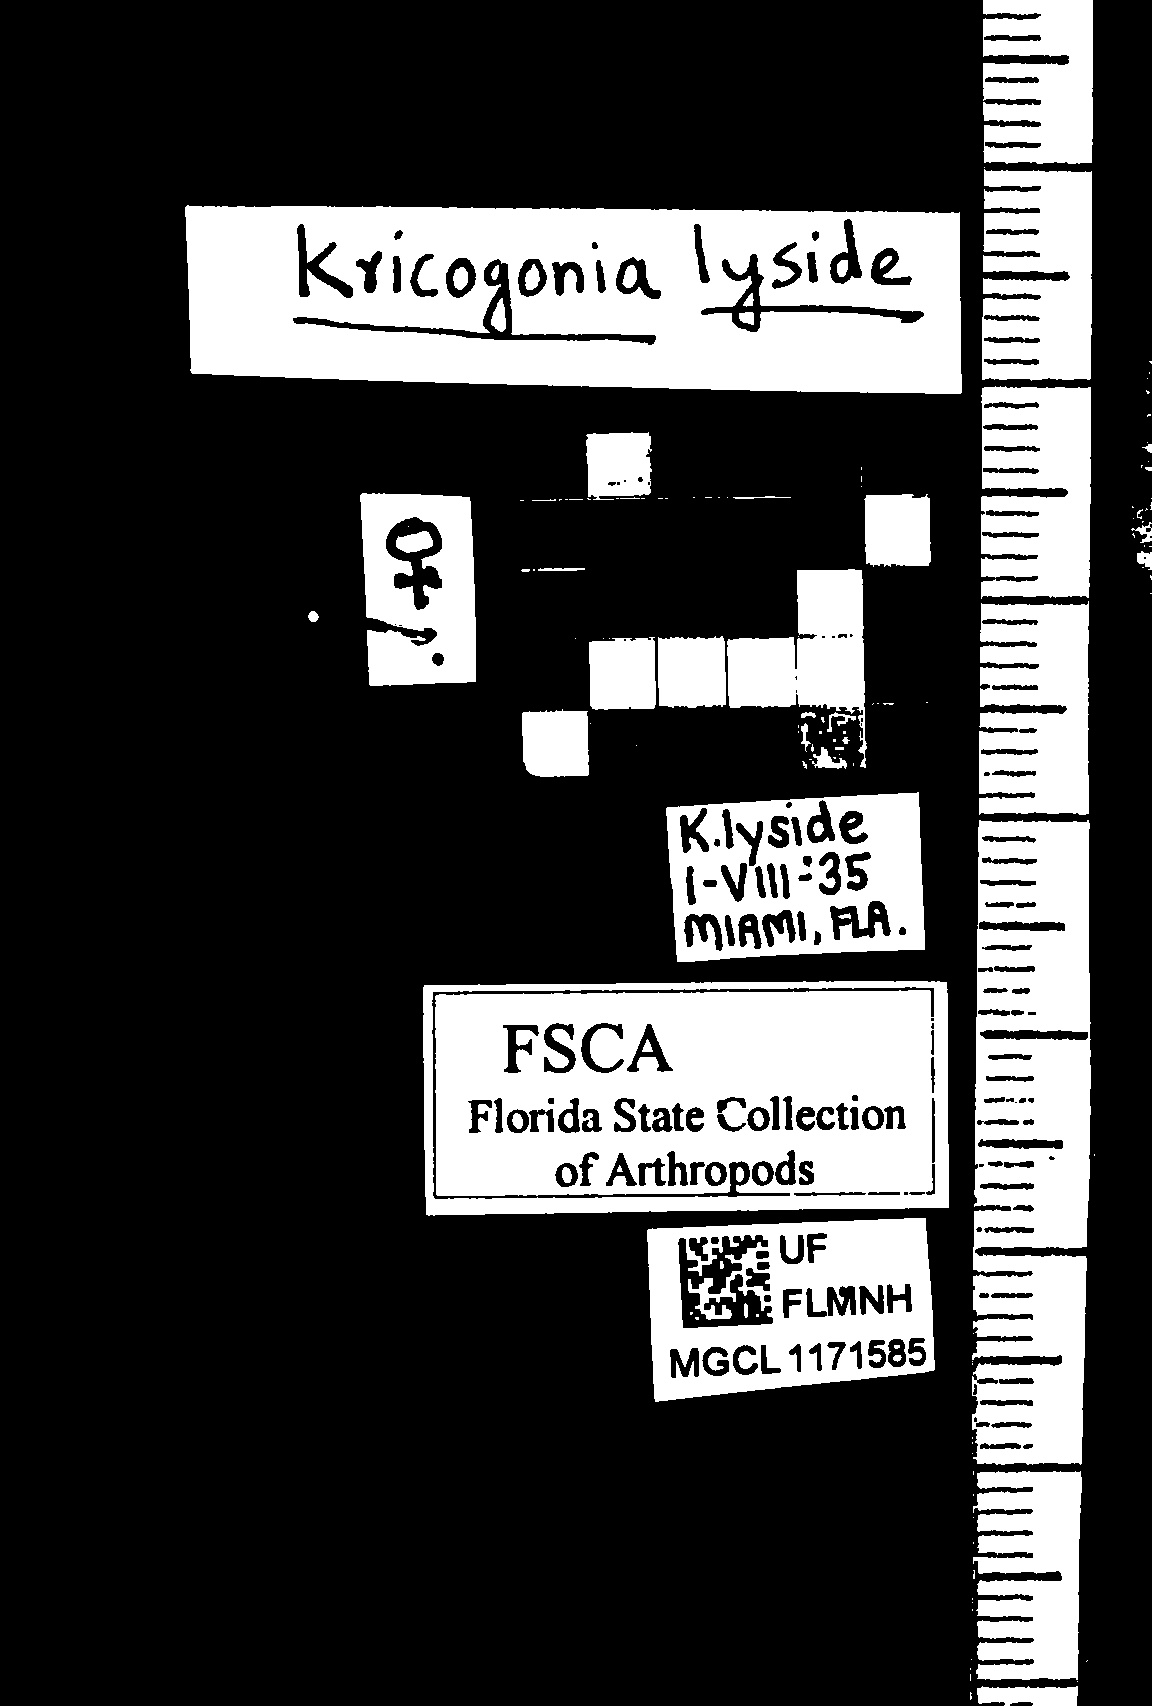 Kricogonia lyside
♀
K.lyside
1-VIII-'35
MIAMI, FLA.
FSCA
Florida State Collection
of Arthropods
UF
FLMNH
MGCL 1171585